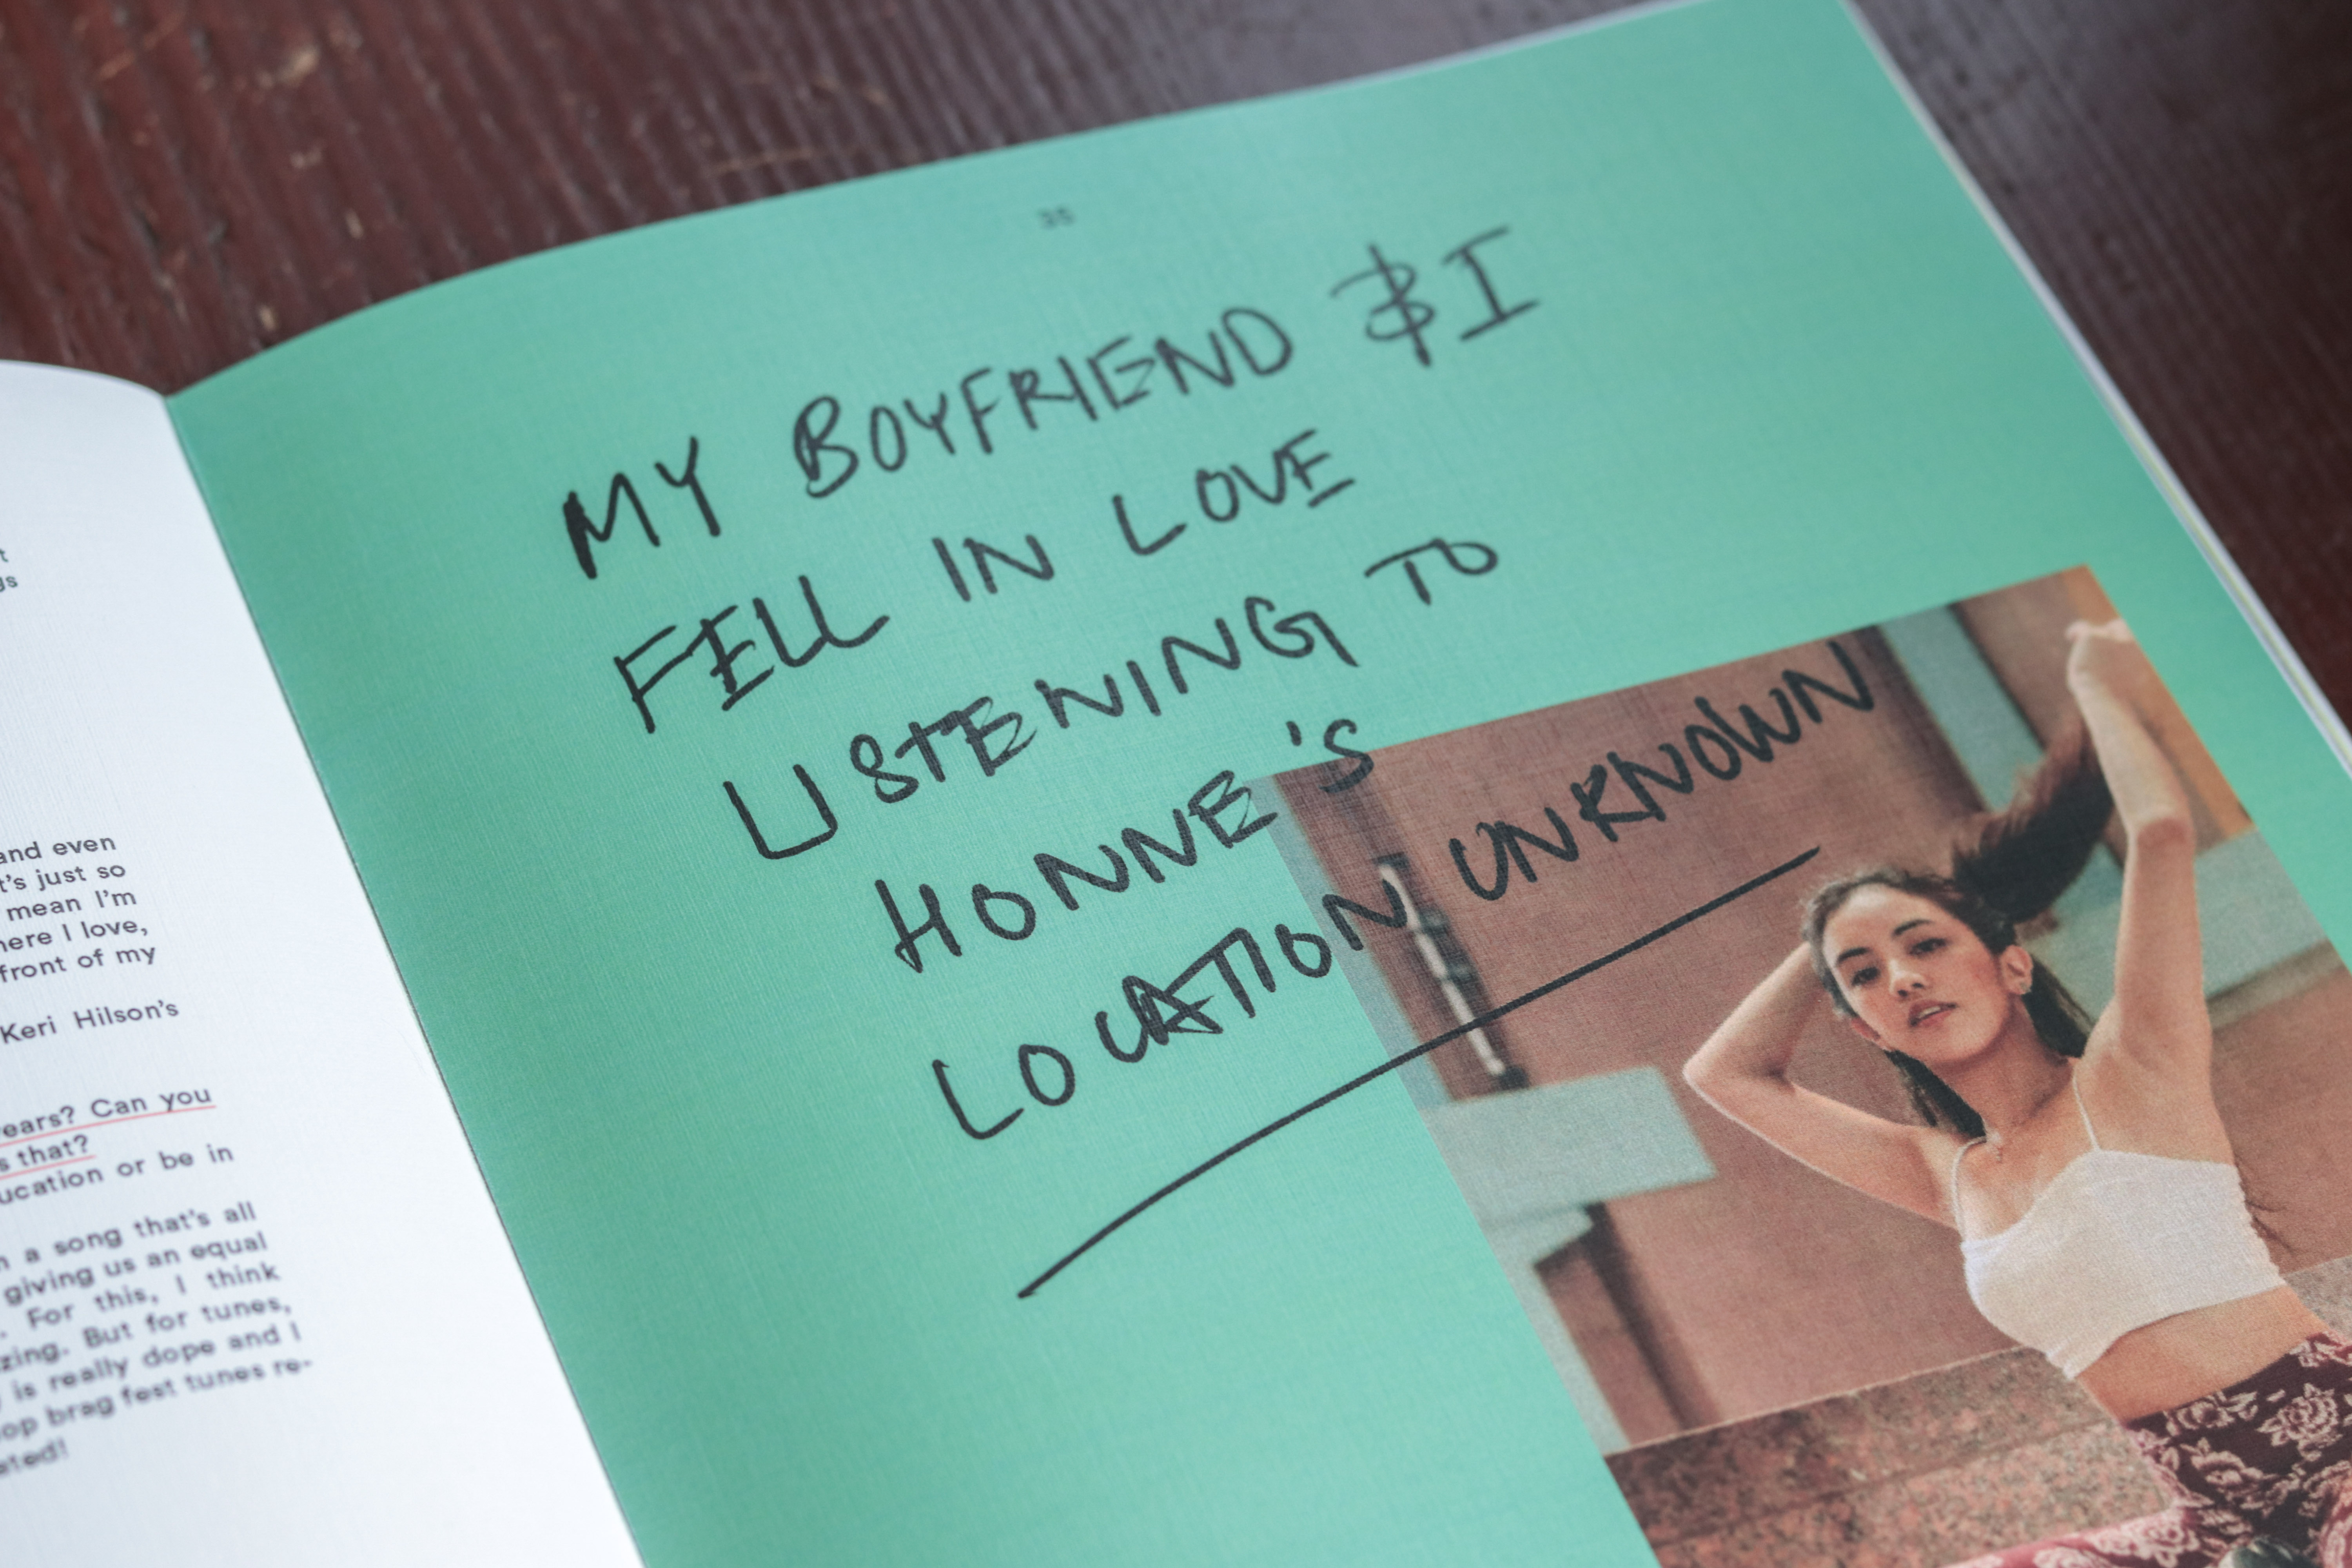 and even
t's just so
mean I'm
here I love,
front of my
Keri Hilson's
ears? Can you
s that?
ucation or be in
a song that's all
giving us an equal
. For this, I think
zing. But for tunes,
is really dope and I
op brag fest tunes re-
ated!
35
MY BOYFRIEND & I
FELL IN LOVE
LISTENING TO
HONNE'S
LOCATION UNKNOWN